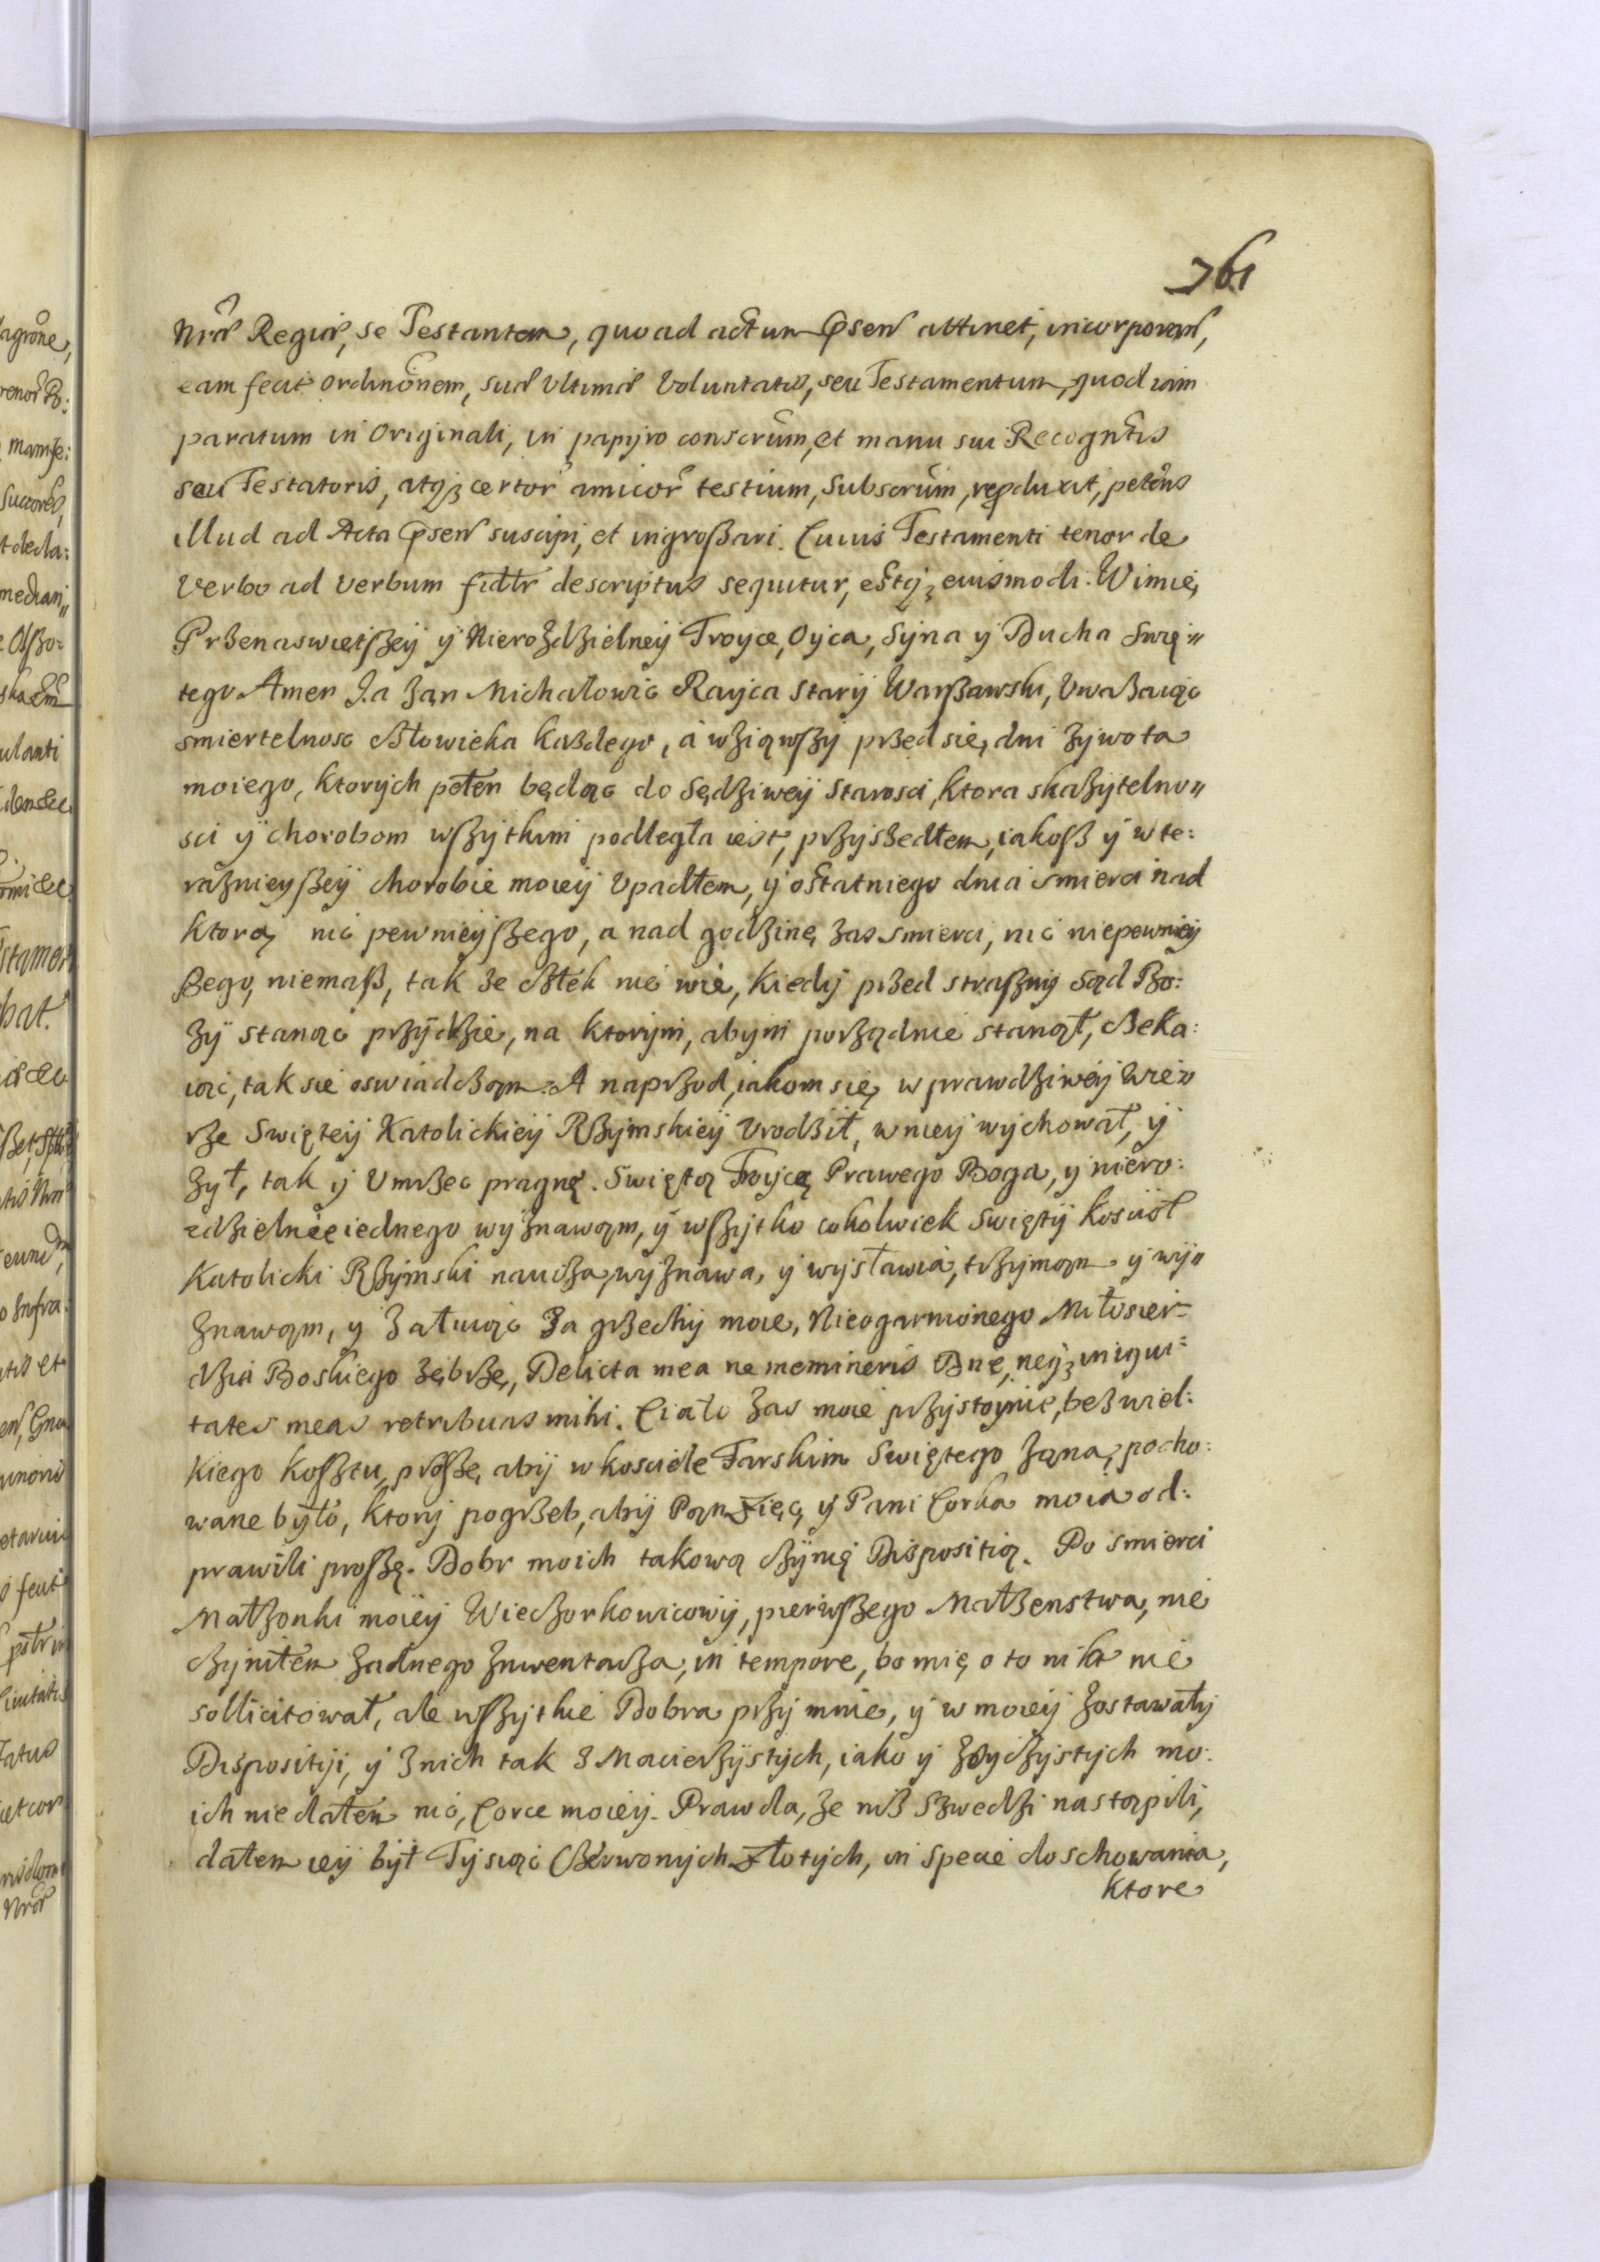 761
Nrae Regiae, se Testantem, quoad actum Psen attinet, incorporan,
eam fecit ordinõnem, suae Ultimae Voluntatis, seu Testamentum, quod iam
paratum in Originali, in papyro conscrum, et manu sui Recogntis
seu Testatoris, atq3 certor amicor testium, subscrum, reproduxit, petens
illud ad Acta Psen suscipi, et ingroßari. Cuius Testamenti tenor de
Verbo ad Verbum fidlr descriptus sequitur, estq3 eiusmodi. W imię
Przenaswiętszey y Nierozdzielney Troyce, Oyca, Syna y Ducha Swię〃
tego Amen Ja Jan Michałowic Rayca stary Warßawski, Uwaßaiąc
smiertelnosc człowieka kazdego, a wziąwszy przed się dni zywota
moiego, ktorych pełen będąc do sędziwey starosci, ktora skazytelno〃
sci y chorobom wszytkim podległa iest, przyszedłem, iakosz y w te:
raznieyßey chorobie moiey Upadłem, y ostatniego dnia smierci nad
ktorą nic pewnieyszego, a nad godzinę zas smierci, nic niepewniey
ßego, niemasz, tak ze człek nie wie, kiedy przed straszny sąd Bo:
zy stanąc przydzie, na ktorym, abym porządnie stanął, czeka:
iąc, tak się oswiadczam. A naprzod, iakom się w prawdziwey wie〃
rze Swiętey Katolickiey Rzymskiey Urodził, w niey wychował, y
zył, tak y Umrzec pragnę. Swiętą Troycą Prawego Boga, y niero:
zdzielnie iednego wyznawam, y wszytko cokolwiek Swięty kosciół
Katolicki Rzymski naucza, wyznawa, y wysławia, trzymam y wy〃
znawam, y załuiąc za grzechy moie, Nieogarnionego Miłosier=
dzia Boskiego zebrzę, Delicta mea ne memineris Dne, neq3 iniqui:
tates meas retribuas mihi. Ciało zas moie przystoynie, bez wiel:
kiego kosztu, proszę, aby w kosciele Farskim Swiętego Jana, pocho:
wane było, ktory pogrzeb, aby Pan Zięc y Pani Corka moia od:
prawili proszę. Dobr moich takową czynię Dispositią. Po smierci
Małzonki moiey Wieczorkowicowy, pierwszego Małzenstwa, nie
czyniłem zadnego Inwentarza, in tempore, bo mię o to nikt nie
sollicitował, ale wszytkie Dobra przy mnie, y w moiey zostawały
Dispositiy, y z nich tak z Macierzystych, iako y z Oyczystych mo:
ich nie dałem nic, Corce moiey. Prawda, ze niz Szwedzi nastąpili,
dałem iey był Tysiąc Czerwonych Złotych, in specie do schowania,
ktore